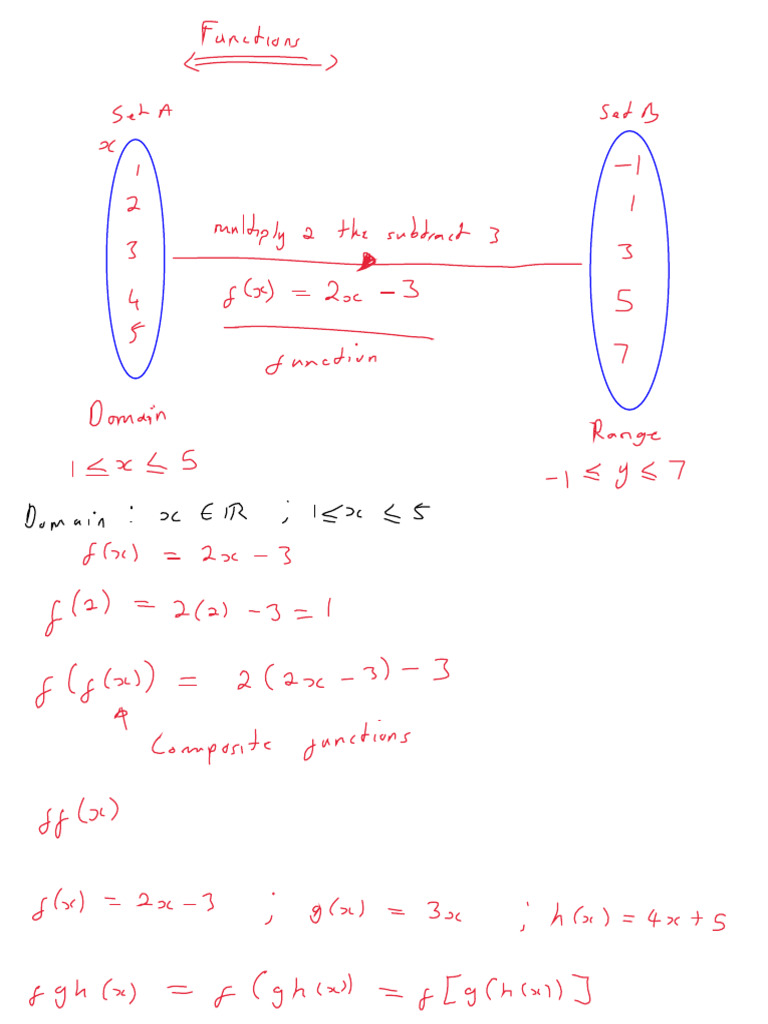 Functions
Set A
Set B
x
1
2
3
4
5
multiply 2 the subtract 3
f(x) = 2x - 3
function
-1
1
3
5
7
Domain
Range
1 ≤ x ≤ 5
-1 ≤ y ≤ 7
Domain : x ∈ ℝ ; 1 ≤ x ≤ 5
f(x) = 2x - 3
f(2) = 2(2) - 3 = 1
f(f(x)) = 2(2x - 3) - 3
Composite functions
ff(x)
f(x) = 2x - 3 ; g(x) = 3x ; h(x) = 4x + 5
fgh(x) = f(gh(x)) = f[g(h(x))]